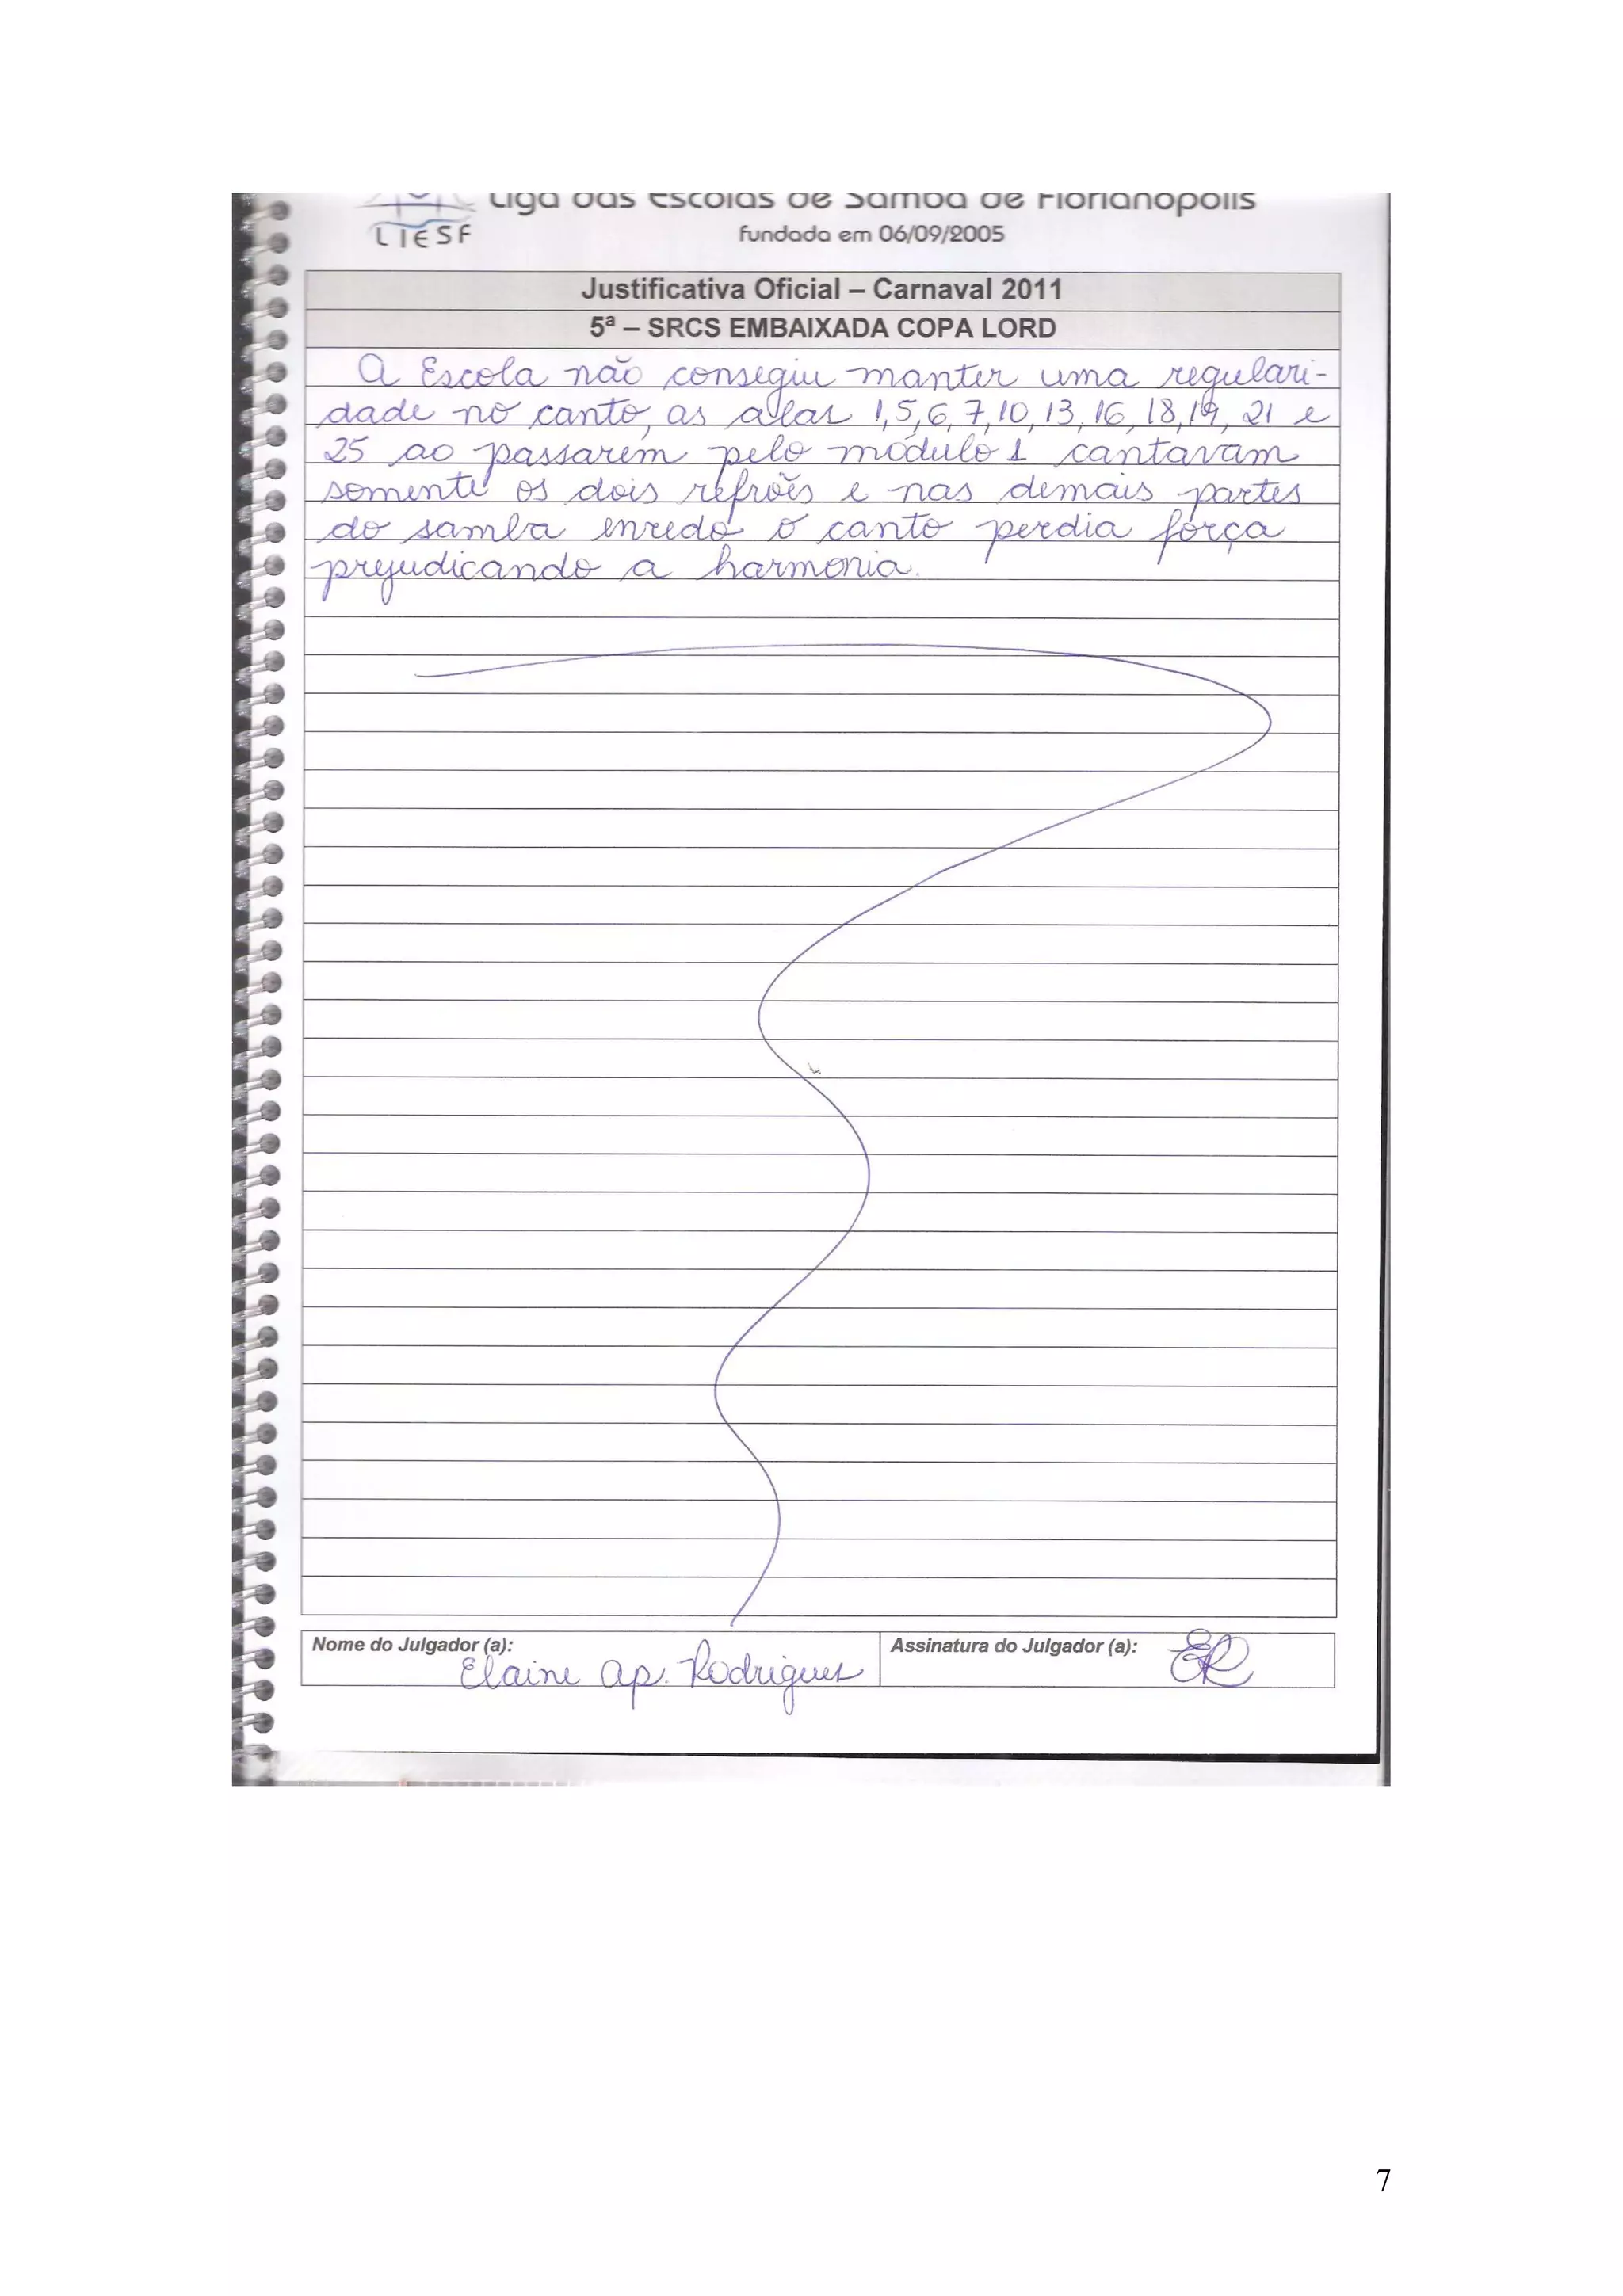 Liga das Escolas de Samba de Florianópolis
LIESF
fundada em 06/09/2005
Justificativa Oficial – Carnaval 2011
5ª – SRCS EMBAIXADA COPA LORD
A Escola não consegiu manter uma regulari-
dade no canto, as alas 1,5,6,7,10,13,16,18,19,21 e
25 ao passarem pelo módulo 1 cantavam
somente os dois refrões e nas demais partes
do samba enredo o canto perdia força
prejudicando a harmonia.
Nome do Julgador (a): Elaine Ap. Rodrigues
Assinatura do Julgador (a): ER
7